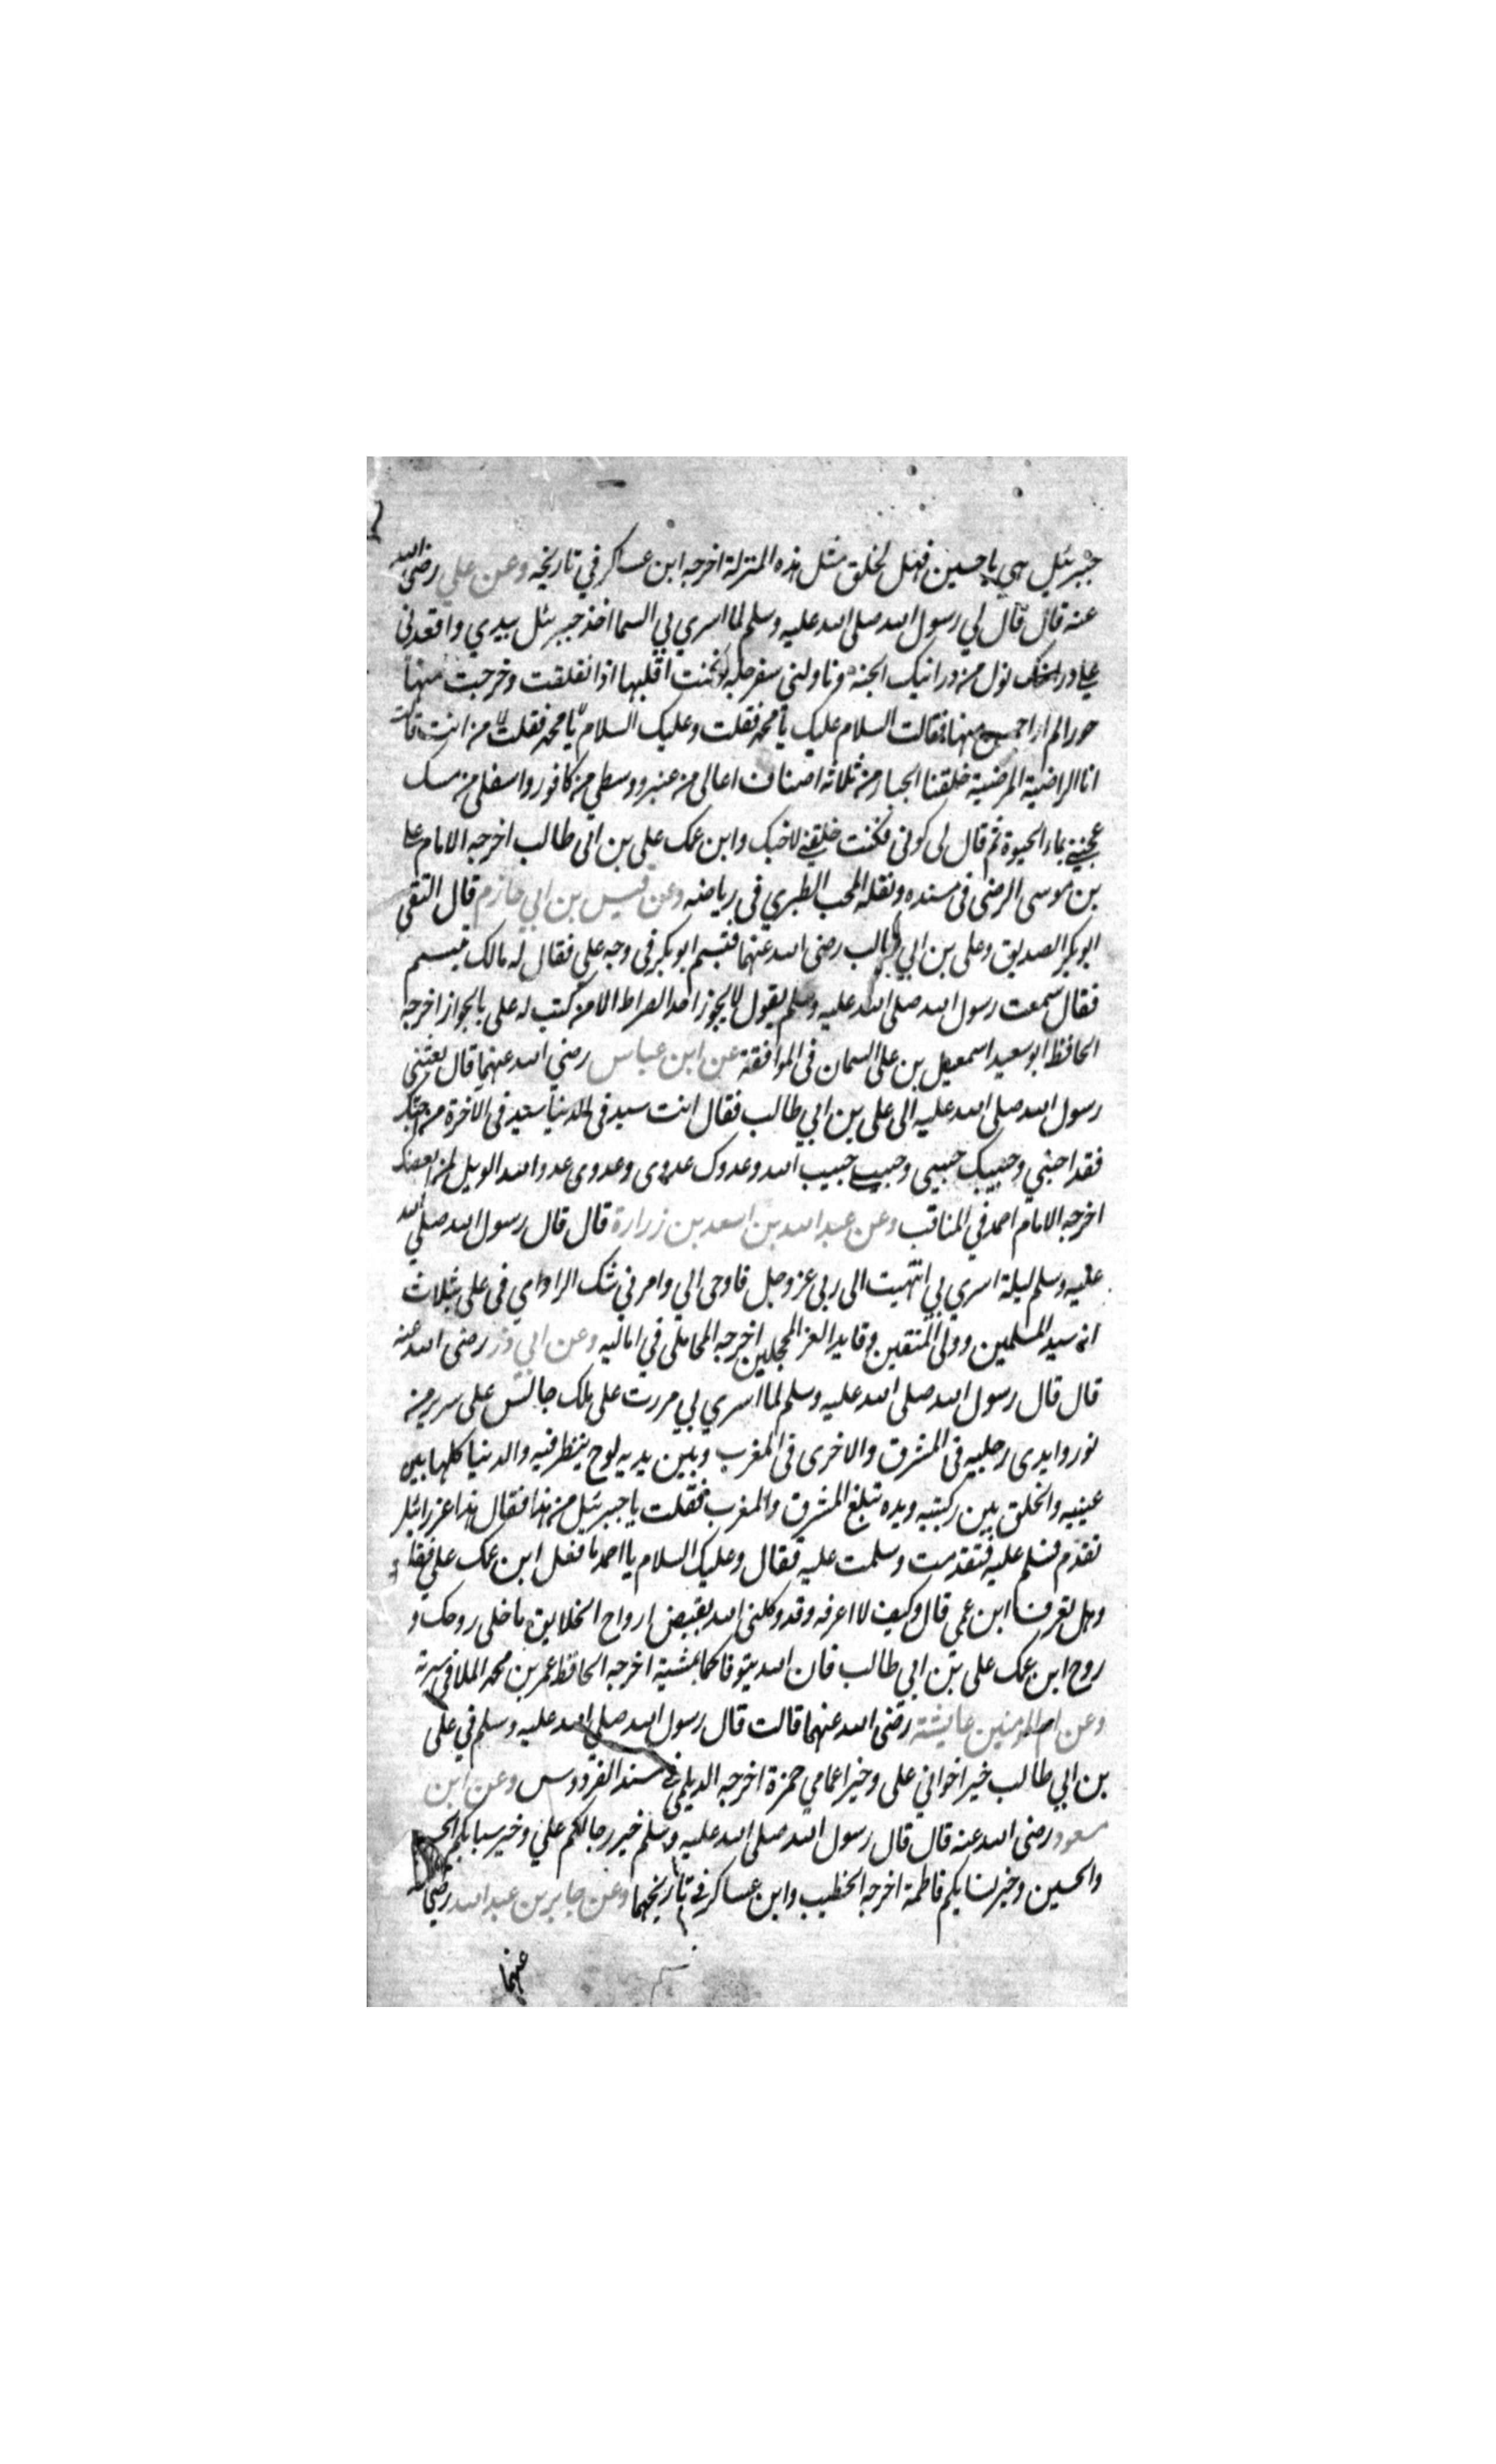 جبرئيل هي يا حسين فهل لخلق مثل هذه المنزلة اخرجه ابن عساكر في تاريخه وعن علي رضى الله
عنه قال قال لي رسول الله صلى الله عليه وسلم لما اسري بي السما اخذ جبرئيل بيدي واقعدنى
على من درانيك الجنة وناولني سفرجلة فكنت اقلبها اذا نفلقت وخرجت منها
حورا لم ار احسن منها فقالت السلام عليك يا محمد فقلت وعليك السلام يا محمد فقلت من انت قالت
انا الراضية المرضية خلقنا الجبار من ثلاثة اصناف اعالى من عنبر ووسطي من كافور واسفلى من مسك
عجننى بماء الحيوة ثم قال لى كونى فكنت خلقنى لاخيك وابن عمك على بن ابى طالب اخرجه الامام على
بن موسى الرضى فى مسنده ونقله المحب الطبري فى رياضه وعن قيس بن ابي حازم قال التقى
ابو بكر الصديق وعلى بن ابي طالب رضى الله عنهما فتبسم ابو بكر فى وجه علي فقال له مالك تبسم
فقال سمعت رسول الله صلى الله عليه وسلم يقول لا يجوز احد الصراط الا من كتب له على بالجواز اخرجه
الحافظ ابو سعيد اسمعيل بن على السمان فى الموافقة عن ابن عباس رضي الله عنهما قال بعثنى
رسول الله صلى الله عليه الى على بن ابي طالب فقال انت سيد فى الدنيا سيد فى الاخرة من احبك
فقد احبني وحبيبك حبيبى وحبيبى حبيب الله وعدوك عدوى وعدوى عدو الله الويل لمن ابغضك
اخرجه الامام احمد في المناقب وعن عبد الله بن اسعد بن زرارة قال قال رسول الله صلي الله
عليه وسلم ليلة اسري بي انتهيت الى ربى عز وجل فاوحى الي وامرني شك الراوي فى على بثلاث
انه سيد المسلمين وولى المتقين وقايد الغر المحجلين اخرجه المحاملى في اماليه وعن ابي ذر رضى الله عنه
قال قال رسول الله صلى الله عليه وسلم لما اسري بي مررت على ملك جالس على سرير من
نور وايدى رجليه فى المشرق والاخرى فى المغرب وبين يديه لوح ينظر فيه والدنيا كلها بين
عينيه والخلق بين ركبتيه ويده تبلغ المشرق والمغرب فقلت يا جبرئيل من هذا فقال هذا عزرائيل
تقدم فسلم عليه فتقدمت وسلمت عليه فقال وعليك السلام يا احمد ما فعل ابن عمك علي فقلت
وهل تعرف ابن عمى قال وكيف لا اعرفه وقد وكلنى الله بقبض ارواح الخلايق ما خلى روحك و
روح ابن عمك على بن ابي طالب فان الله يتوفاكما بمشية اخرجه الحافظ عمر بن محمد الملا فى سيرته
وعن ام المومنين عايشة رضى الله عنها قالت قال رسول الله صلى الله عليه وسلم في على
بن ابي طالب خير اخواني على وخير اعمامي حمزة اخرجه الديلمى فى مسند الفردوس وعن ابن
مسعود رضى الله عنه قال قال رسول الله صلى الله عليه وسلم خير رجالكم علي وخير سبابكم الحسن
والحسين وخير نسايكم فاطمة اخرجه الخطيب وابن عساكر فى تاريخهما وعن جابر بن عبد الله رضي الله
عنهما